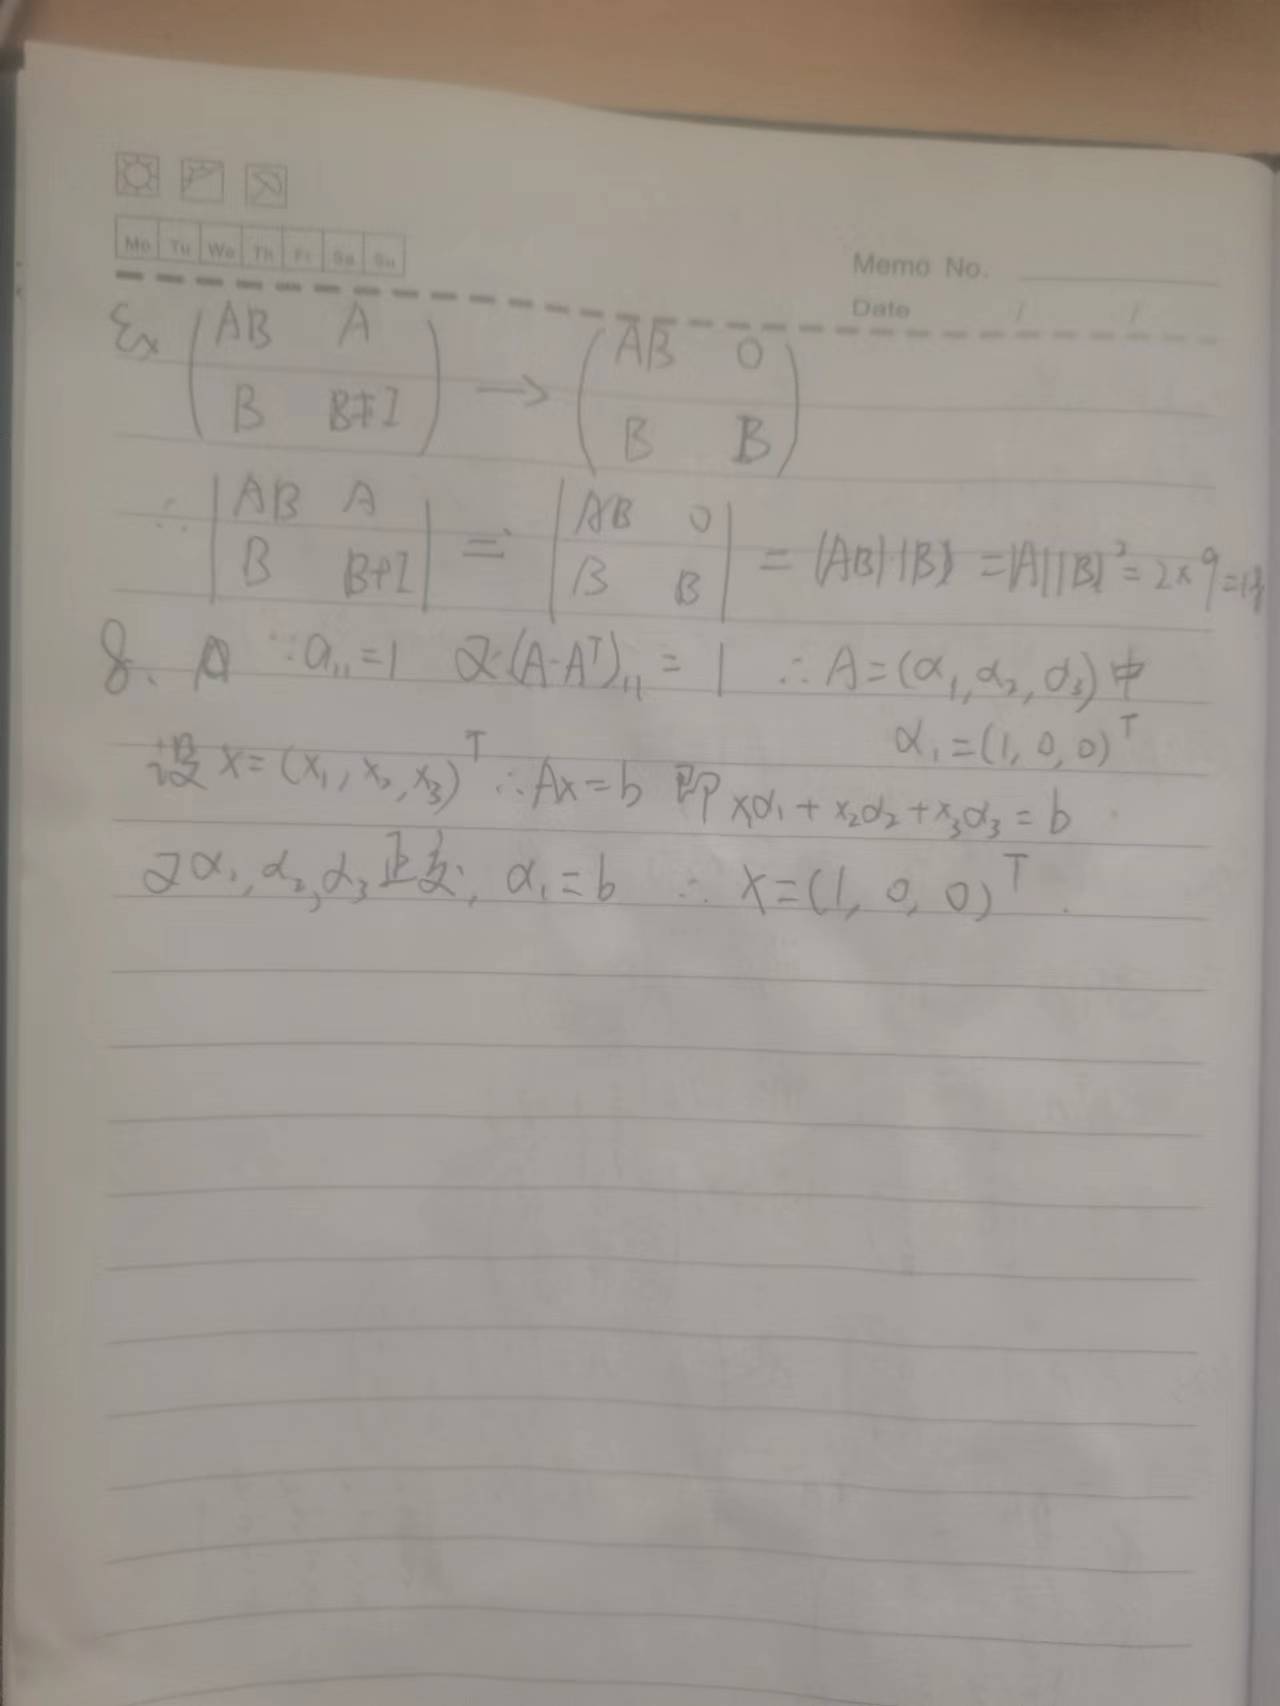 Mo Tu We Th Fr Sa Su
Memo No.
Date / /
Ex (AB A; B B+I) → (AB 0; B B)
∴ |AB A; B B+I| = |AB 0; B B| = |AB|·|B| = |A||B|² = 2×9 = 18
8. ∵ a₁₁=1 又∵(A·Aᵀ)₁₁ = 1 ∴ A=(α₁,α₂,α₃)中
α₁=(1,0,0)ᵀ
设 x=(x₁,x₂,x₃)ᵀ ∴Ax=b 即 xα₁+x₂α₂+x₃α₃=b
又α₁,α₂,α₃正交, α₁=b ∴ x=(1,0,0)ᵀ.